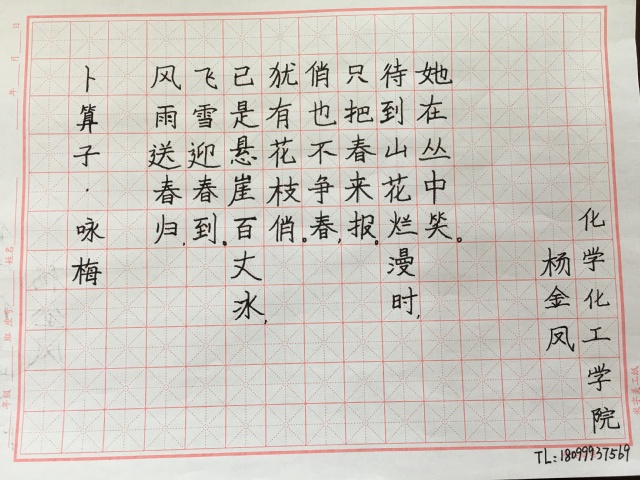 卜算子·咏梅
风雨送春归,
飞雪迎春到。
已是悬崖百丈氷,
犹有花枝俏。
俏也不争春,
只把春来报。
待到山花烂漫时,
她在丛中笑。
杨金凤
化学化工学院
TL:18099937569
年 月 日
姓名
年级 班